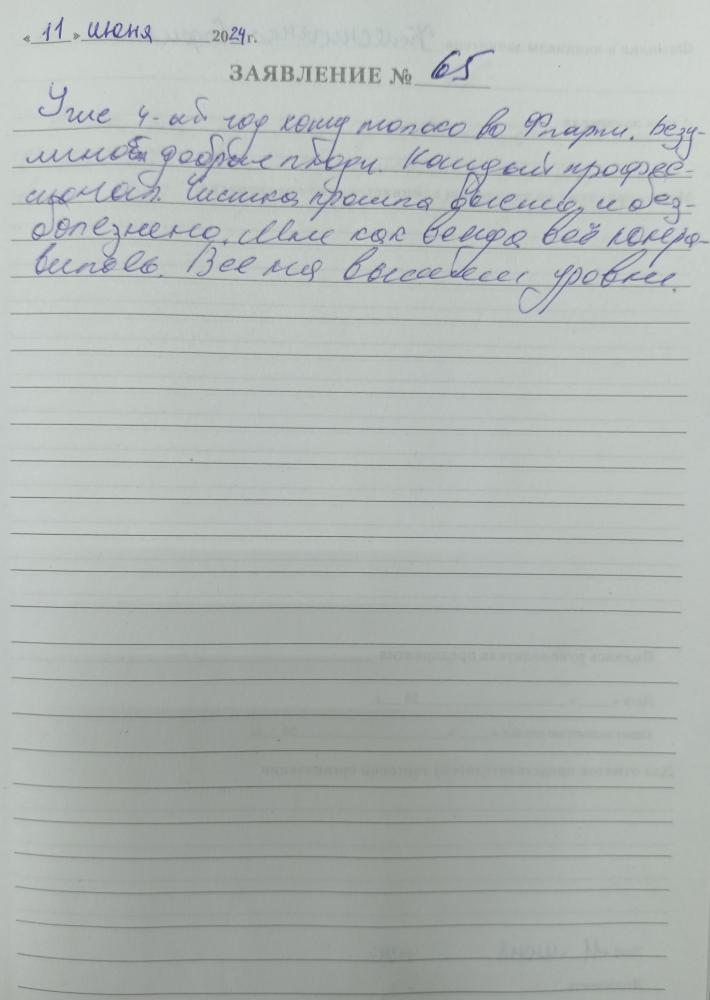 « 11 » июня 2024г.
ЗАЯВЛЕНИЕ № 65
Уже 4-ый год хожу только во Фларти. Безу-
мно добрые люди. Каждый профес-
ионал. Чистка прошла и без-
болезнено. Мне как всегда всё понра-
вилось. Все на высшем уровне.